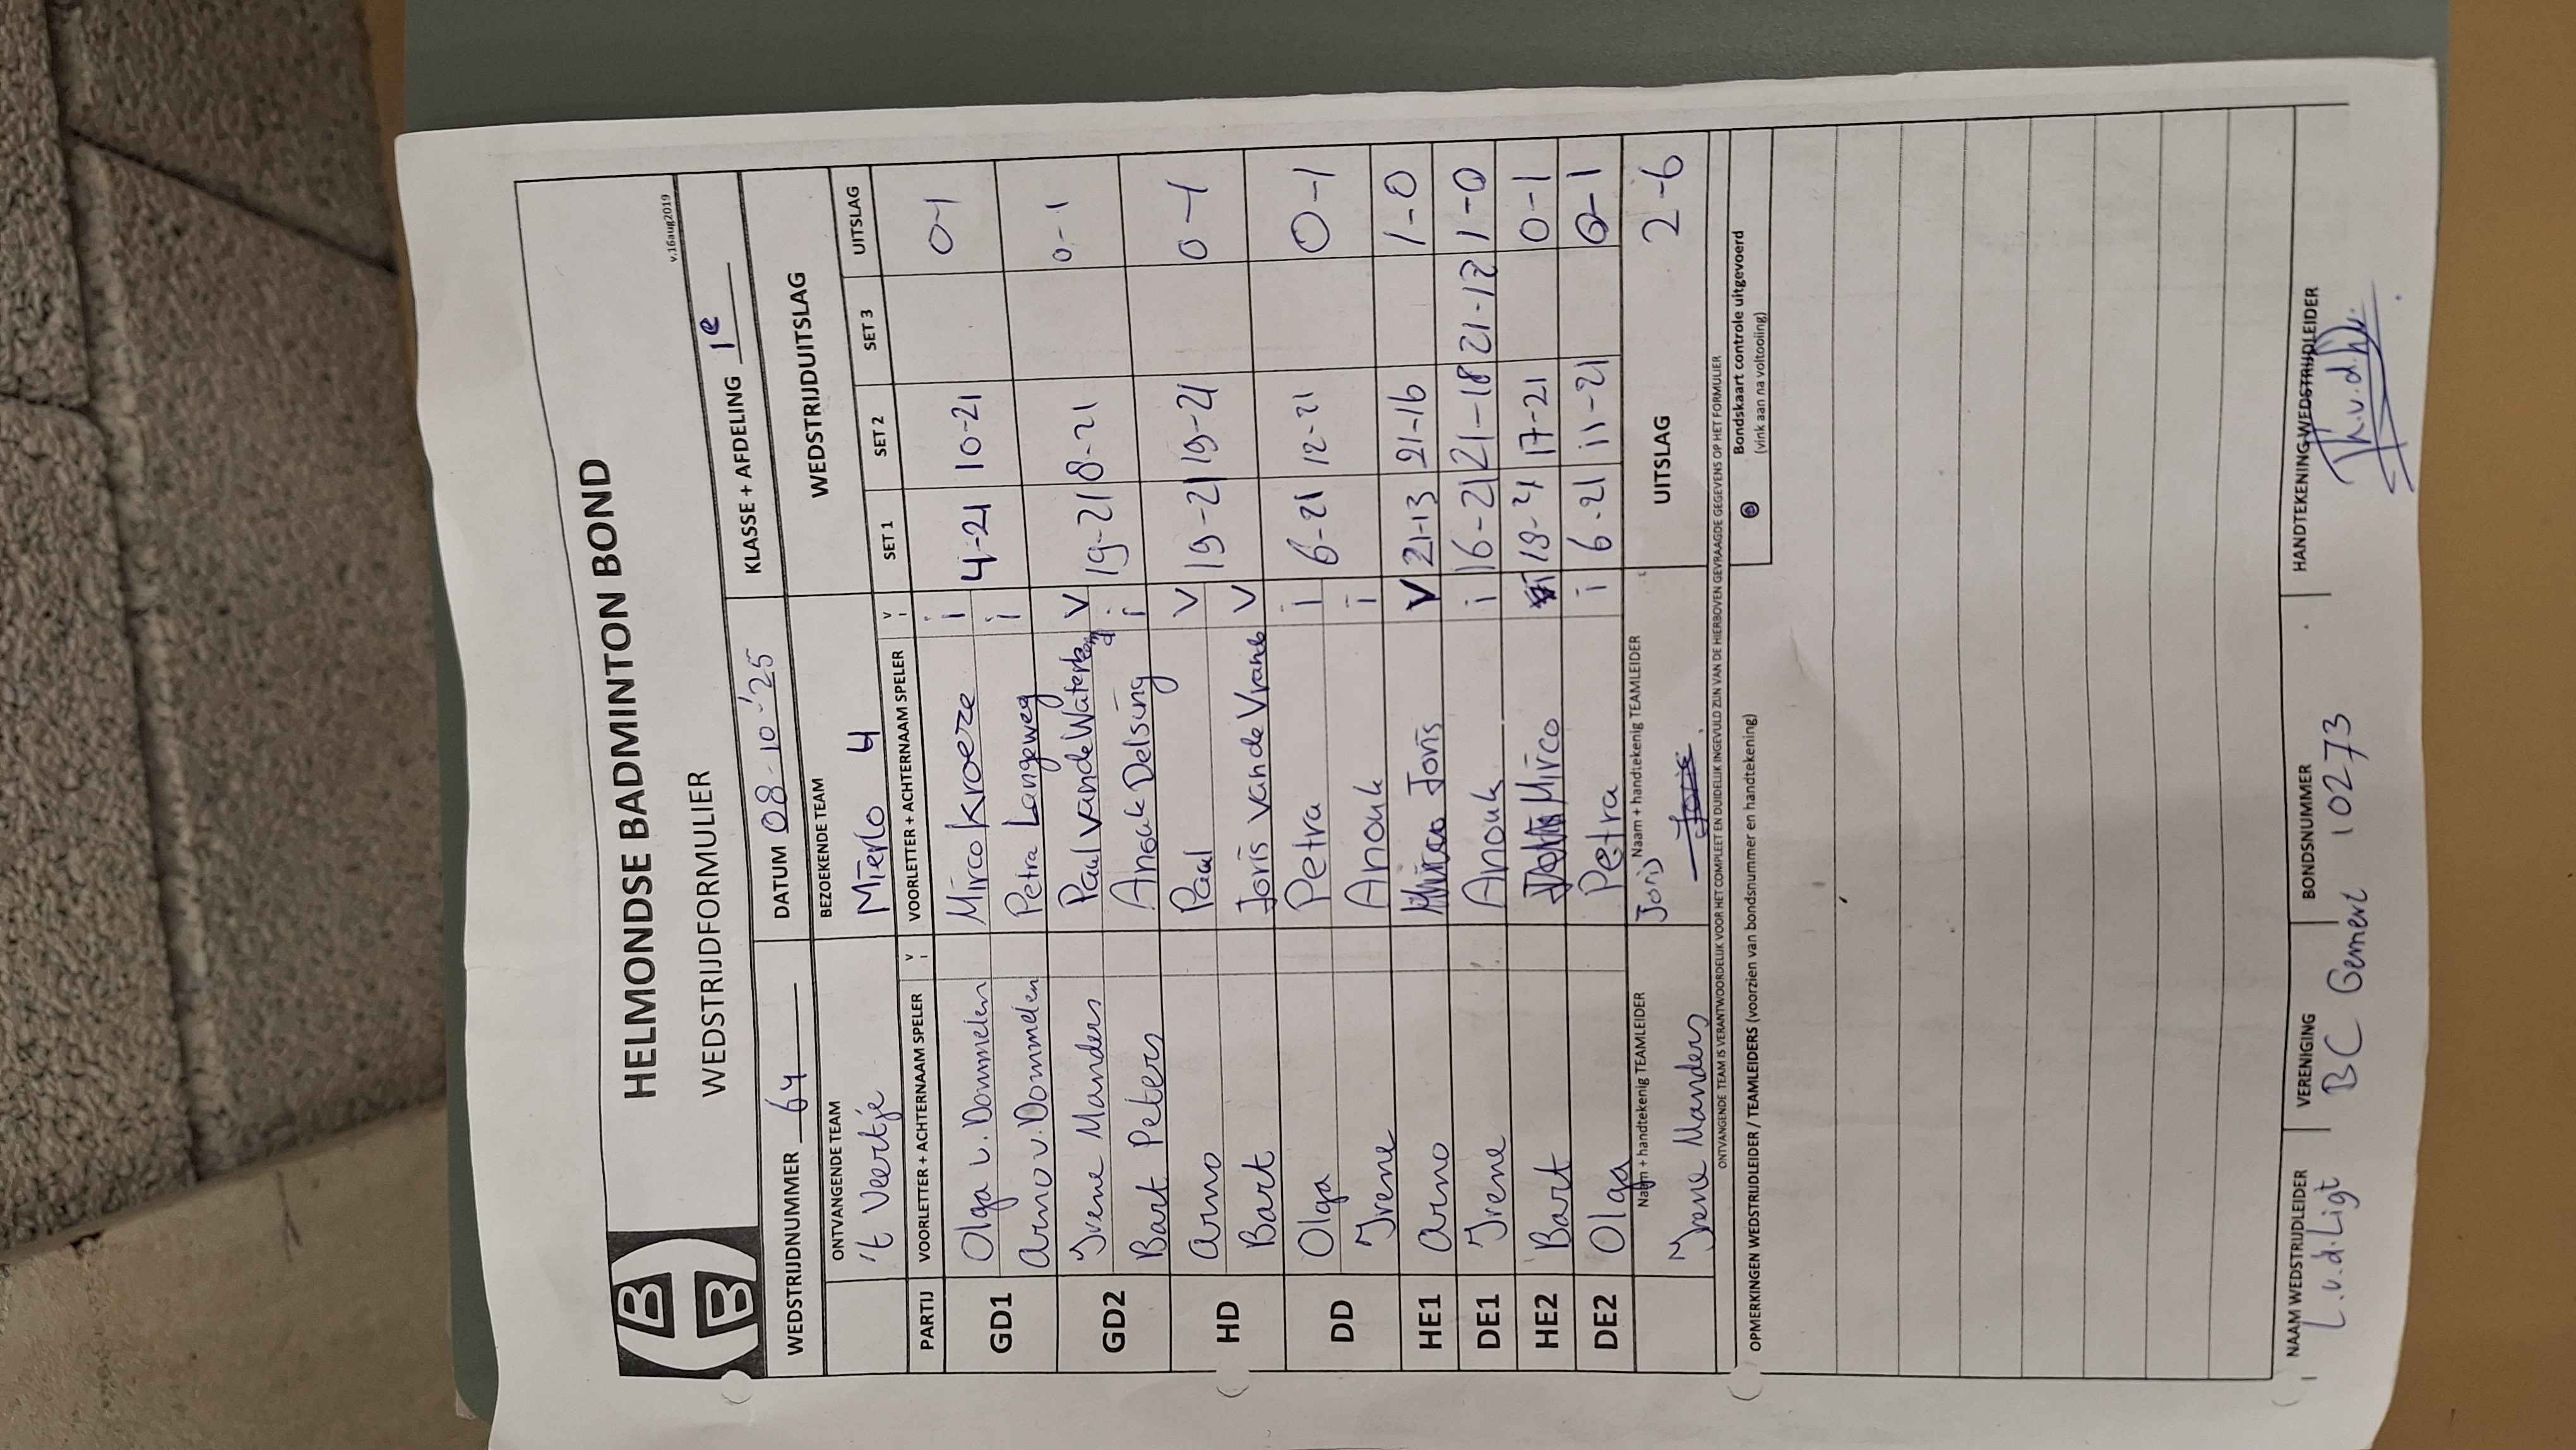 HELMONDSE BADMINTON BOND
WEDSTRIJDFORMULIER
v.16aug2019
WEDSTRIJDNUMMER 64 DATUM 08-10-'25 KLASSE + AFDELING 1e
ONTVANGENDE TEAM BEZOEKENDE TEAM WEDSTRIJDUITSLAG
't Veertje Mierlo 4
PARTIJ VOORLETTER + ACHTERNAAM SPELER v i VOORLETTER + ACHTERNAAM SPELER v i SET 1 SET 2 SET 3 UITSLAG
GD1 Olga v. Dommelen Mirco Kroeze i 4-21 10-21 0-1
Arno v. Dommelen Petra Langeweg i
GD2 Irene Manders Paul van de V 19-21 8-21 0-1
Bart Peters Anouk Delsing i
HD Arno Paul V 19-21 19-21 0-1
Bart Joris van de V
DD Olga Petra i 6-21 12-21 0-1
Irene Anouk i
HE1 Arno Joris V 21-13 21-16 1-0
DE1 Irene Anouk i 16-21 21-18 21-12 1-0
HE2 Bart Mirco i 18-21 17-21 0-1
DE2 Olga Petra i 6-21 11-21 0-1
Naam + handtekenig TEAMLEIDER Naam + handtekenig TEAMLEIDER UITSLAG 2-6
Irene Manders Joris Joris
ONTVANGENDE TEAM IS VERANTWOORDELIJK VOOR HET COMPLEET EN DUIDELIJK INGEVULD ZIJN VAN DE HIERBOVEN GEVRAAGDE GEGEVENS OP HET FORMULIER
OPMERKINGEN WEDSTRIJDLEIDER / TEAMLEIDERS (voorzien van bondsnummer en handtekening)
Bondskaart controle uitgevoerd
(vink aan na voltooiing)
NAAM WEDSTRIJDLEIDER VERENIGING BONDSNUMMER HANDTEKENING WEDSTRIJDLEIDER
L.v.d.Ligt BC Gemert 10273